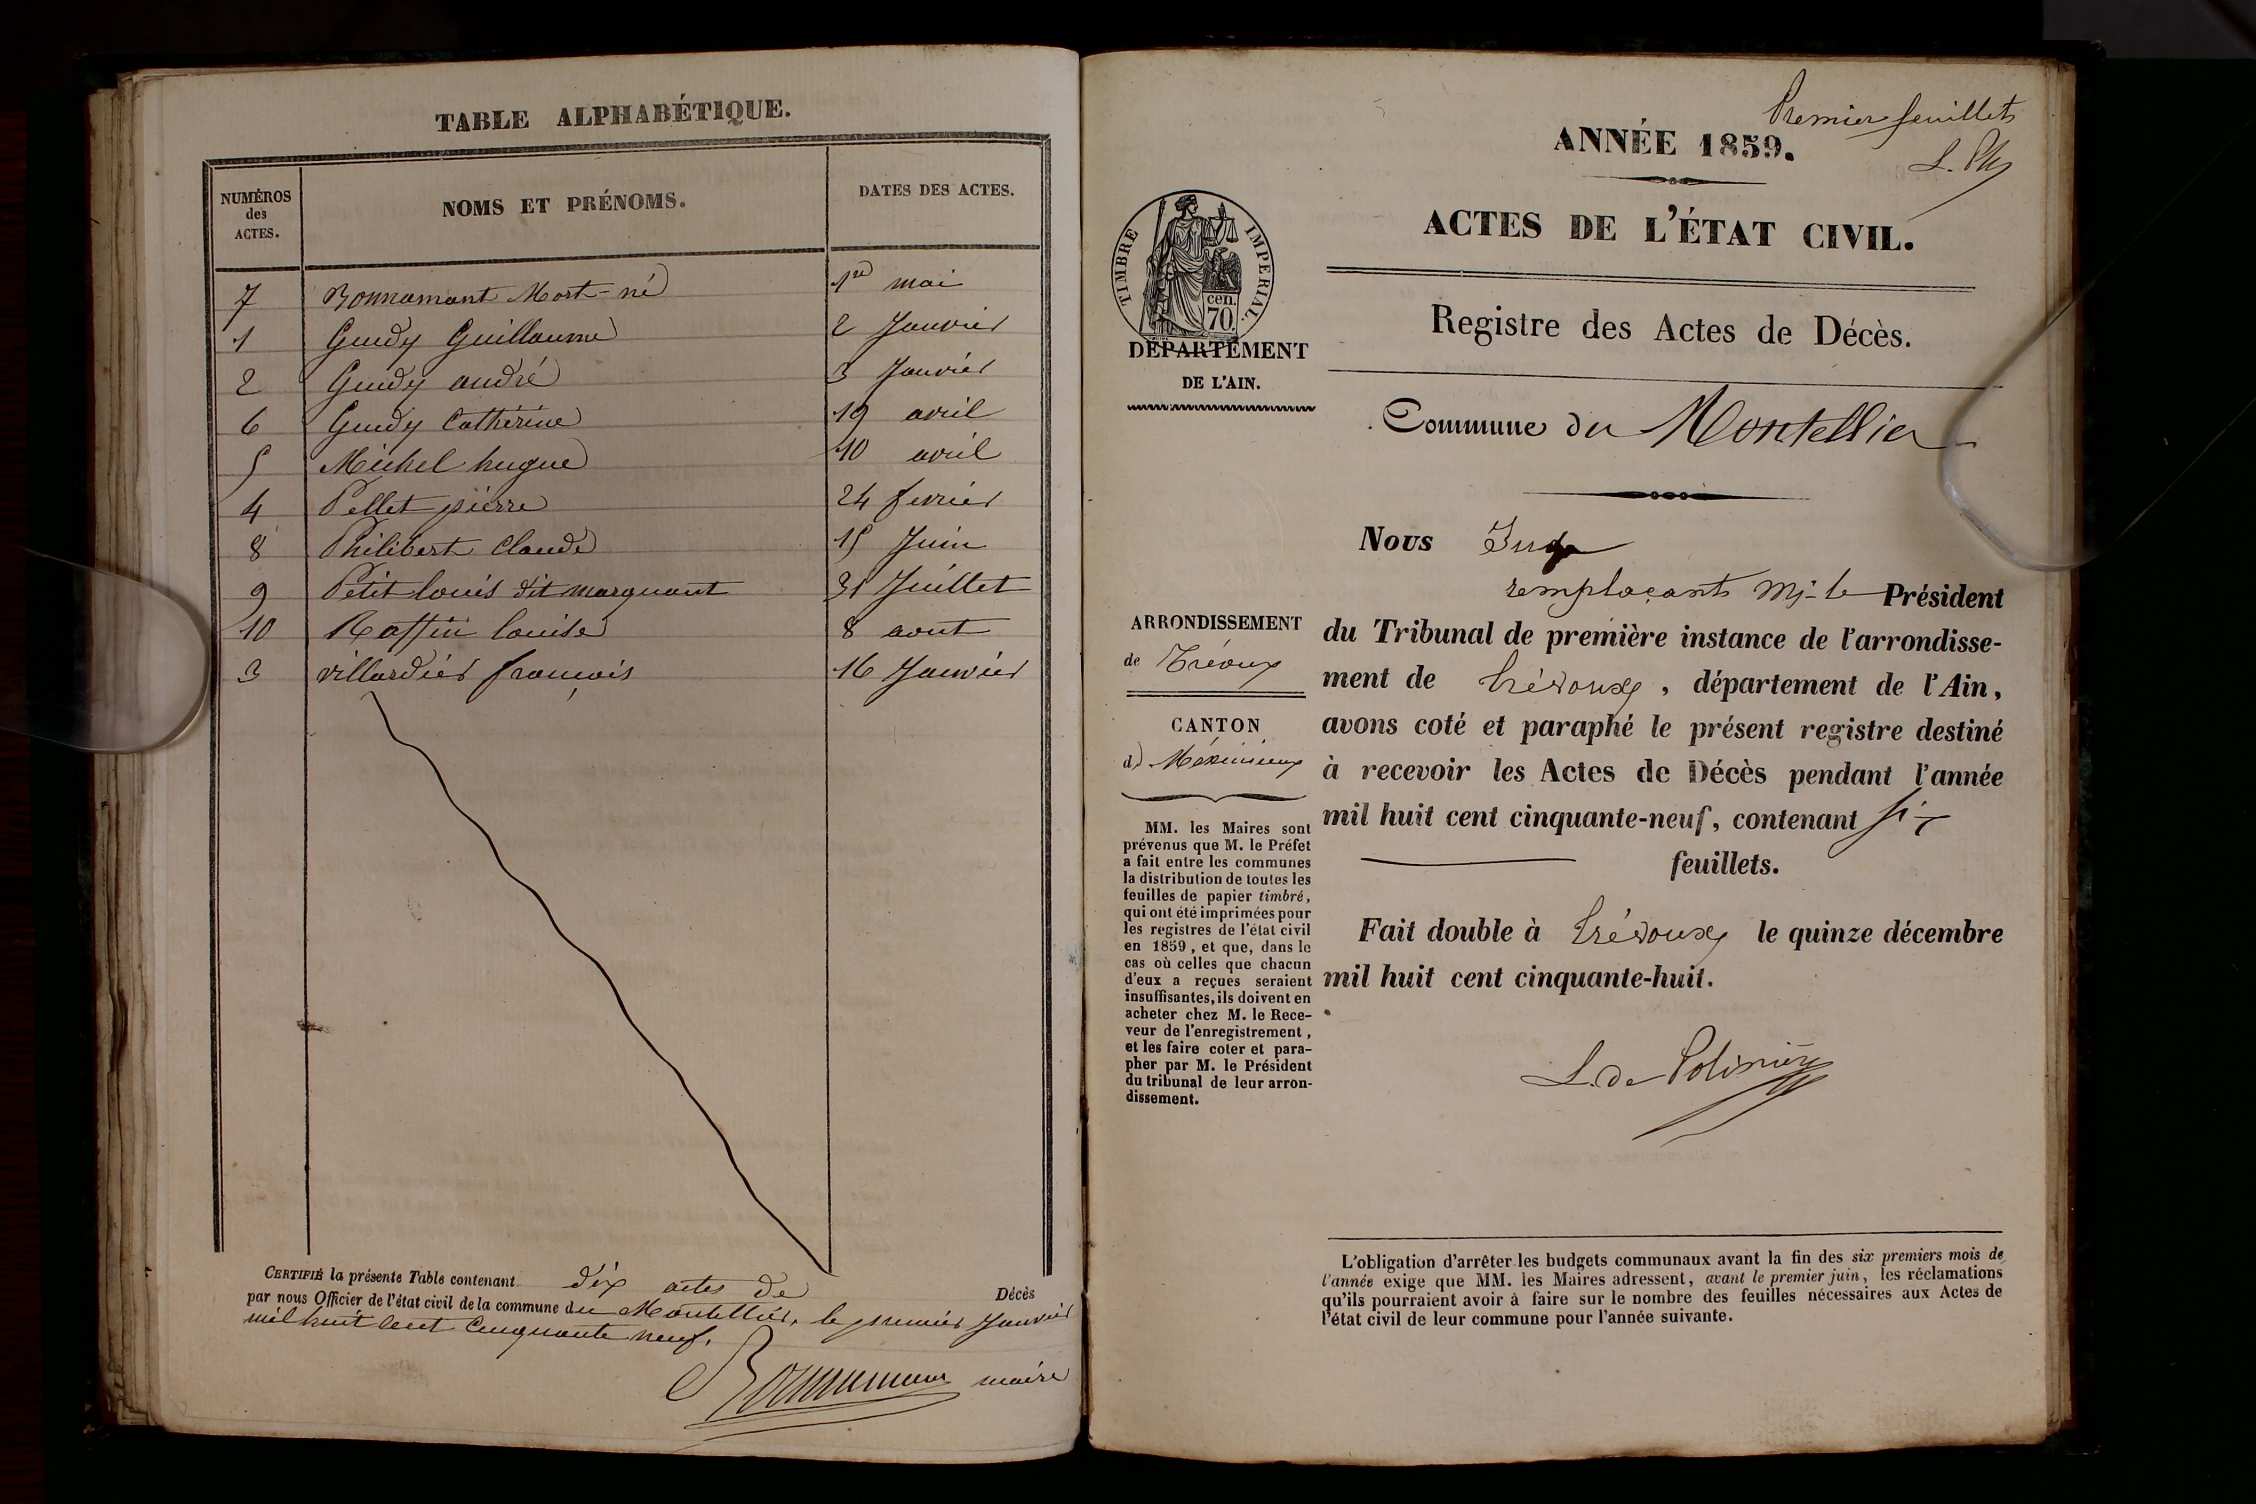 TABLE ALPHABÉTIQUE.
NUMÉROS
des
ACTES.
NOMS ET PRÉNOMS.
DATES DES ACTES.
7 Bonnamant Mort-né 1er mai
1 Guidy Guillaume 2 Janvier
2 Guidy andré 3 Janvier
6 Guidy Catherine 19 avril
5 Michel hugue 10 avril
4 Pellet pierre 24 fevrier
8 Philibert Claude 15 Juin
9 Petit louis dit marquant 31 Juillet
10 Raffin louise 8 aout
3 villardier francois 16 Janvier
CERTIFIÉ la présente Table contenant dix actes de Décès
par nous Officier de l'état civil de la commune du Montellier, le premier Janvier
mil huit cent cinquante neuf.
maire
Premier feuillet
ANNÉE 1859.
ACTES DE L'ÉTAT CIVIL.
TIMBRE IMPERIAL.
cen.
70.
DÉPARTEMENT
DE L'AIN.
Registre des Actes de Décès.
Commune du Montellier
Nous Juge
remplaçant Mr le Président
du Tribunal de première instance de l'arrondisse-
ment de trévoux, département de l'Ain,
avons coté et paraphé le présent registre destiné
à recevoir les Actes de Décès pendant l'année
mil huit cent cinquante-neuf, contenant six
feuillets.
Fait double à trévoux le quinze décembre
mil huit cent cinquante-huit.
L. de Polinière
ARRONDISSEMENT
de Trévoux
CANTON
de Méximieux
MM. les Maires sont
prévenus que M. le Préfet
a fait entre les communes
la distribution de toutes les
feuilles de papier timbré,
qui ont été imprimées pour
les registres de l'état civil
en 1859, et que, dans le
cas où celles que chacun
d'eux a reçues seraient
insuffisantes, ils doivent en
acheter chez M. le Rece-
veur de l'enregistrement,
et les faire coter et para-
pher par M. le Président
du tribunal de leur arron-
dissement.
L'obligation d'arrêter les budgets communaux avant la fin des six premiers mois de
l'année exige que MM. les Maires adressent, avant le premier juin, les réclamations
qu'ils pourraient avoir à faire sur le nombre des feuilles nécessaires aux Actes de
l'état civil de leur commune pour l'année suivante.